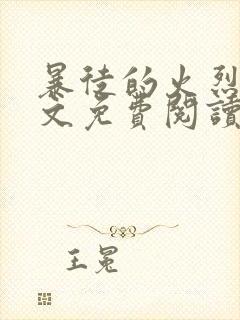 暴徒的火烈
文免費閱讀
王冕